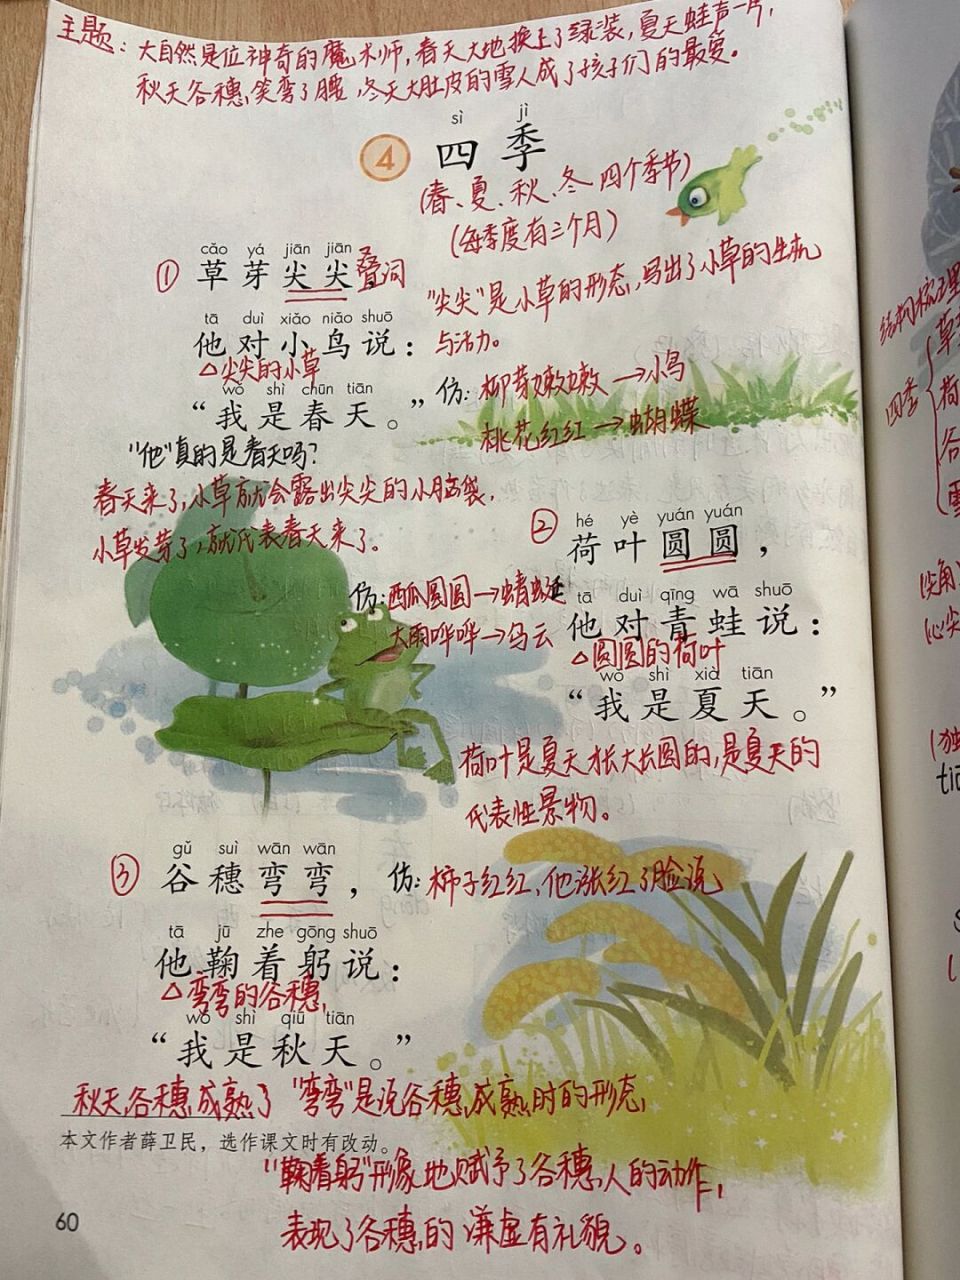 主题：大自然是位神奇的魔术师，春天大地换上了绿装，夏天蛙声一片，
秋天谷穗笑弯了腰，冬天大肚皮的雪人成了孩子们的最爱。
sì jì
4 四季
(春、夏、秋、冬 四个季节)
(每季度有三个月)
cǎo yá jiān jiān
① 草芽尖尖，叠词
"尖尖"是小草的形态，写出了小草的生机
与活力。
tā duì xiǎo niǎo shuō
他对小鸟说：
△尖尖的小草
wǒ shì chūn tiān
“我是春天。”
仿：柳芽嫩嫩→小鸟
桃花红红→蝴蝶
"他"真的是春天吗？
春天来了，小草就会露出尖尖的小脑袋，
小草发芽了，就代表春天来了。
hé yè yuán yuán
② 荷叶圆圆，
仿：西瓜圆圆→蜻蜓
大雨哗哗→乌云
tā duì qīng wā shuō
他对青蛙说：
△圆圆的荷叶
wǒ shì xià tiān
“我是夏天。”
荷叶是夏天才长大长圆的，是夏天的
代表性景物。
gǔ suì wān wān
③ 谷穗弯弯，
仿：柿子红红，他涨红了脸说
tā jū zhe gōng shuō
他鞠着躬说：
△弯弯的谷穗，
wǒ shì qiū tiān
“我是秋天。”
秋天谷穗成熟了 "弯弯"是说谷穗成熟时的形态，
本文作者薛卫民，选作课文时有改动。
"鞠着躬"形象地赋予了谷穗人的动作，
表现了谷穗的谦虚有礼貌。
60
结构梳理
四季